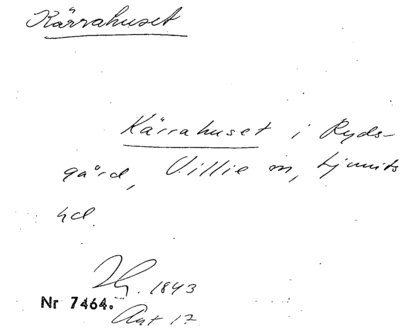 Kärrahuset
Kärrahuset i Ryds-
gård, Villie sn, Ljunits
hd.
1843
Nr 7464.